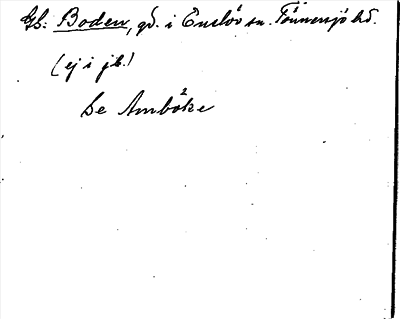 Gb: Boden, gd. i Enslöv sn. Tönnersjö hd.
(ej i jb.)
Se Amböke